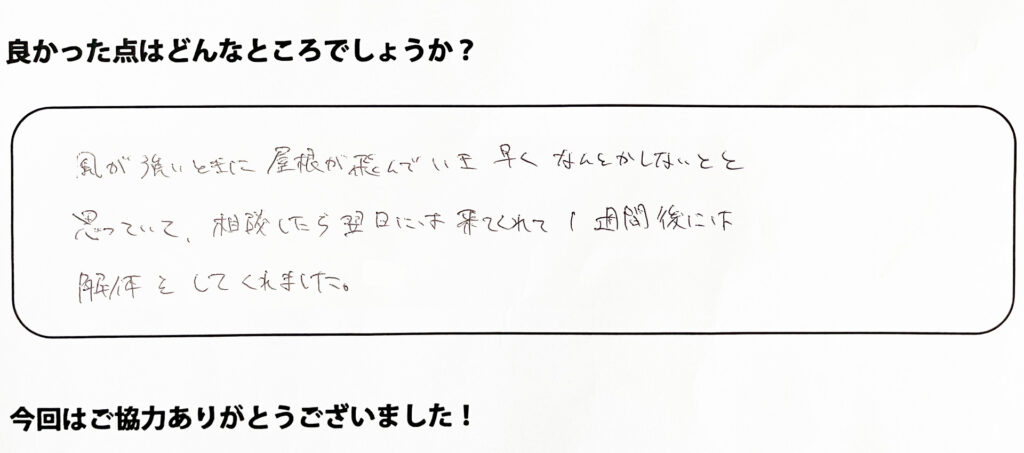 良かった点はどんなところでしょうか?
風が強いときに屋根が飛んでいき 早く なんとかしないとと
思っていて、相談したら翌日には来てくれて1週間後には
解体をしてくれました。
今回はご協力ありがとうございました!